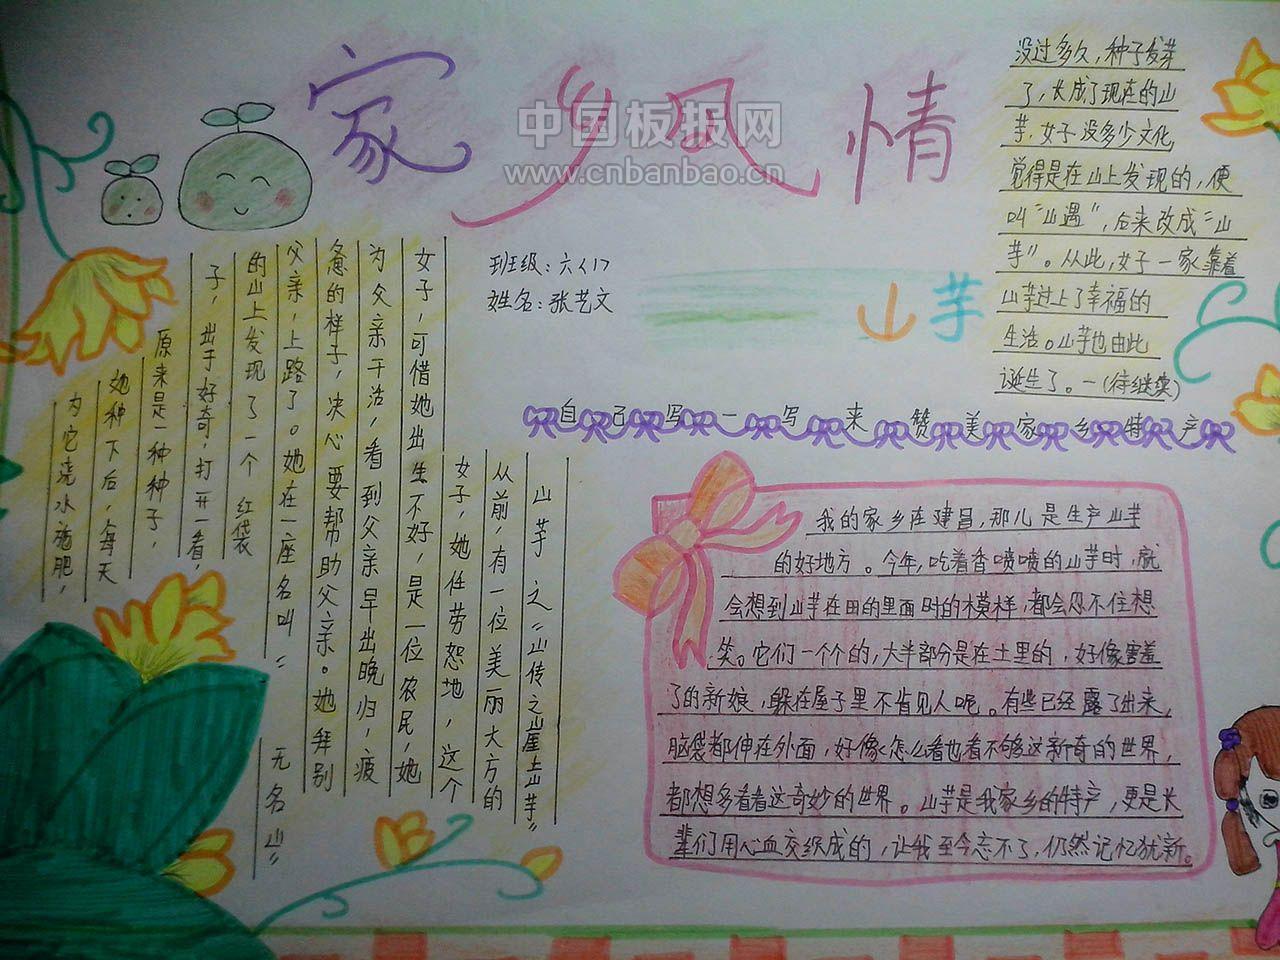 家乡风情
中国板报网
www.cnbanbao.cn
班级：六（1）
姓名：张艺文
山芋
山芋之“山传之崖上山芋”
从前，有一位美丽大方的
女子，她任劳恕地，这个
女子，可惜她出生不好，是一位农民，她
为父亲干活，看到父亲早出晚归，疲
惫的样子，决心要帮助父亲。她拜别
父亲，上路了。她在一座名叫“无名山”
的山上发现了一个红袋
子，出于好奇，打开一看，
原来是一种种子，
她种下后，每天
为它浇水施肥，
没过多久，种子发芽
了，长成了现在的山
芋。女子没多少文化
觉得是在山上发现的，便
叫“山遇”，后来改成“山
芋”。从此，女子一家靠着
山芋过上了幸福的
生活。山芋也由此
诞生了。—（待继续）
自己写一写来赞美家乡特产
我的家乡在建昌，那儿是生产山芋
的好地方。今年，吃着香喷喷的山芋时，就
会想到山芋在田的里面时的模样，都会忍不住想
笑。它们一个个的，大半部分是在土里的，好像害羞
了的新娘，躲在屋子里不肯见人呢。有些已经露了出来，
脑袋都伸在外面，好像怎么看也看不够这新奇的世界，
都想多看看这奇妙的世界。山芋是我家乡的特产，更是长
辈们用心血交织成的，让我至今忘不了，仍然记忆犹新。